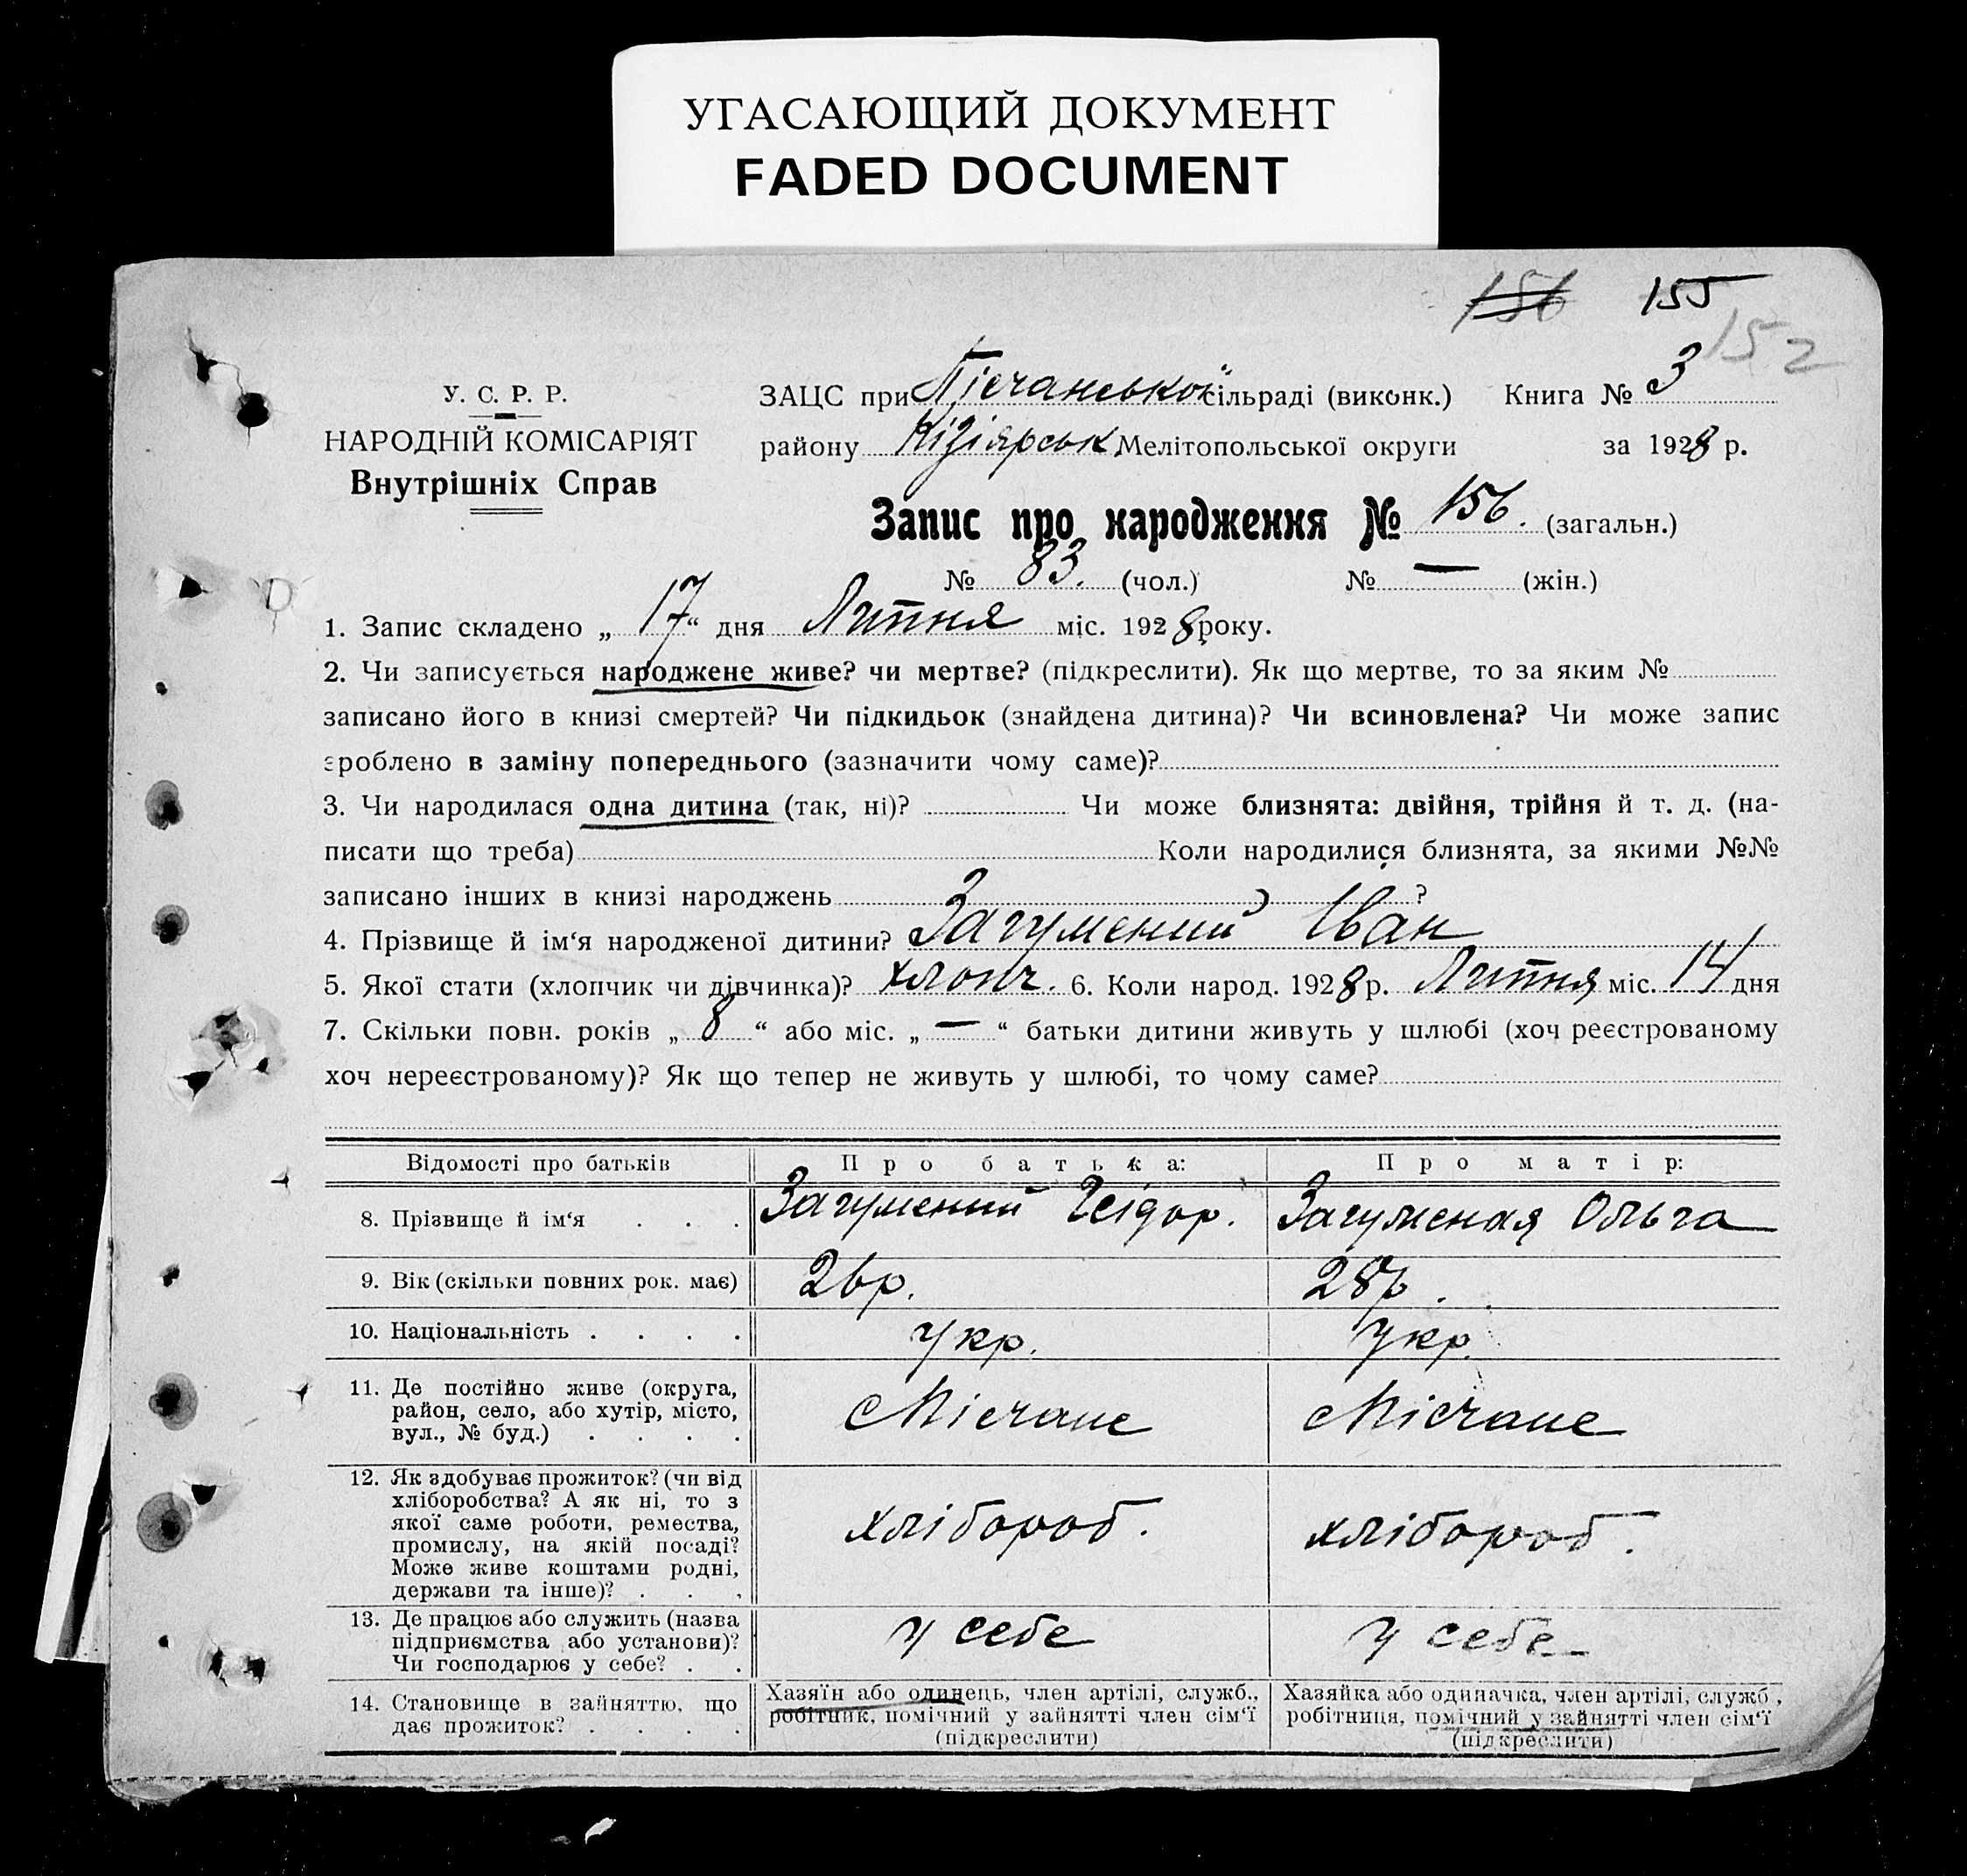 УГАСАЮЩИЙ ДОКУМЕНТ
FADED DOCUMENT
156 155
152
У. С. Р. Р.
НАРОДНІЙ КОМІСАРІЯТ
Внутрішніх Справ
ЗАЦС при Пісчанської сільраді (виконк.) Книга № 3
району Кізіярськ Мелітопольської округи за 1928 р.
Запис про народження № 156. (загальн.)
№ 83. (чол.) № — (жін.)
1. Запис складено „ 17 “ дня Липня міс. 1928 року.
2. Чи записується народжене живе? чи мертве? (підкреслити). Як що мертве, то за яким №
записано його в книзі смертей? Чи підкидьок (знайдена дитина)? Чи всиновлена? Чи може запис
зроблено в заміну попереднього (зазначити чому саме)?
3. Чи народилася одна дитина (так, ні)? Чи може близнята: двійня, трійня й т. д. (на-
писати що треба) Коли народилися близнята, за якими №№
записано інших в книзі народжень ?
4. Прізвище й ім‘я народженої дитини? Загумений Іван
5. Якої стати (хлопчик чи дівчинка)? хлопч. 6. Коли народ. 1928 р. Липня міс. 14 дня
7. Скільки повн. років „ 8 “ або міс. „ — “ батьки дитини живуть у шлюбі (хоч реєстрованому
хоч нереєстрованому)? Як що тепер не живуть у шлюбі, то чому саме?
Відомості про батьків Про батька: Про матір:
8. Прізвище й ім‘я . . . Загумений Ісідор. Загуменая Ольга
9. Вік (скільки повних рок. має) 26р. 28р.
10. Національність . . . . Укр. Укр.
11. Де постійно живе (округа,
район, село, або хутір, місто,
вул., № буд.) . . . .
с Пісчане с Пісчане
12. Як здобуває прожиток? (чи від
хліборобства? А як ні, то з
якої саме роботи, ремества,
промислу, на якій посаді?
Може живе коштами родні,
держави та інше)? . . .
хлібороб. хлібороб.
13. Де працює або служить (назва
підприємства або установи)?
Чи господарює у себе? . .
у себе у себе
14. Становище в зайняттю, що
дає прожиток? . . . .
Хазяїн або одинець, член артілі, служб.,
робітник, помічний у зайнятті член сім‘ї
(підкреслити)
Хазяйка або одиначка, член артілі, служб.,
робітниця, помічний у зайнятті член сім‘ї
(підкреслити)